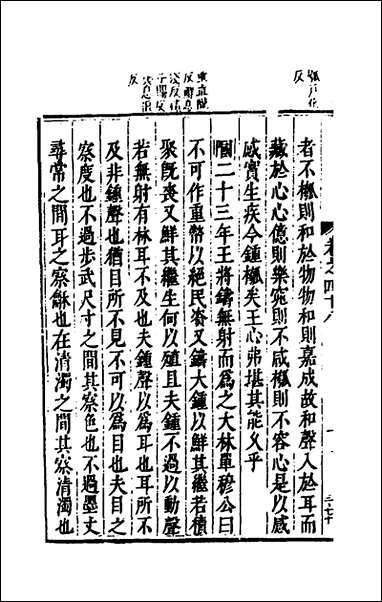 槬戶化
反
卷之四十八
者不槬則和於物物和則嘉成故和聲入於耳而
藏於心心億則樂窕則不咸槬則不容心是以感
感實生疾今鍾槬矣王心弗堪其能久乎
國二十三年王將鑄無射而爲之大林單穆公曰
重直隴
反鮮息
淺反積
子賜反
喪息浪
反
不可作重幣以絕民資又鑄大鍾以鮮其繼若積
聚旣喪又鮮其繼生何以殖且夫鍾不過以動聲
若無射有林耳不及也夫鍾聲以爲耳也耳所不
及非鍾聲也猶目所不見不可以爲目也夫目之
察度也不過步武尺寸之間其察色也不過墨丈
尋常之間耳之察龢也在清濁之間其察清濁也